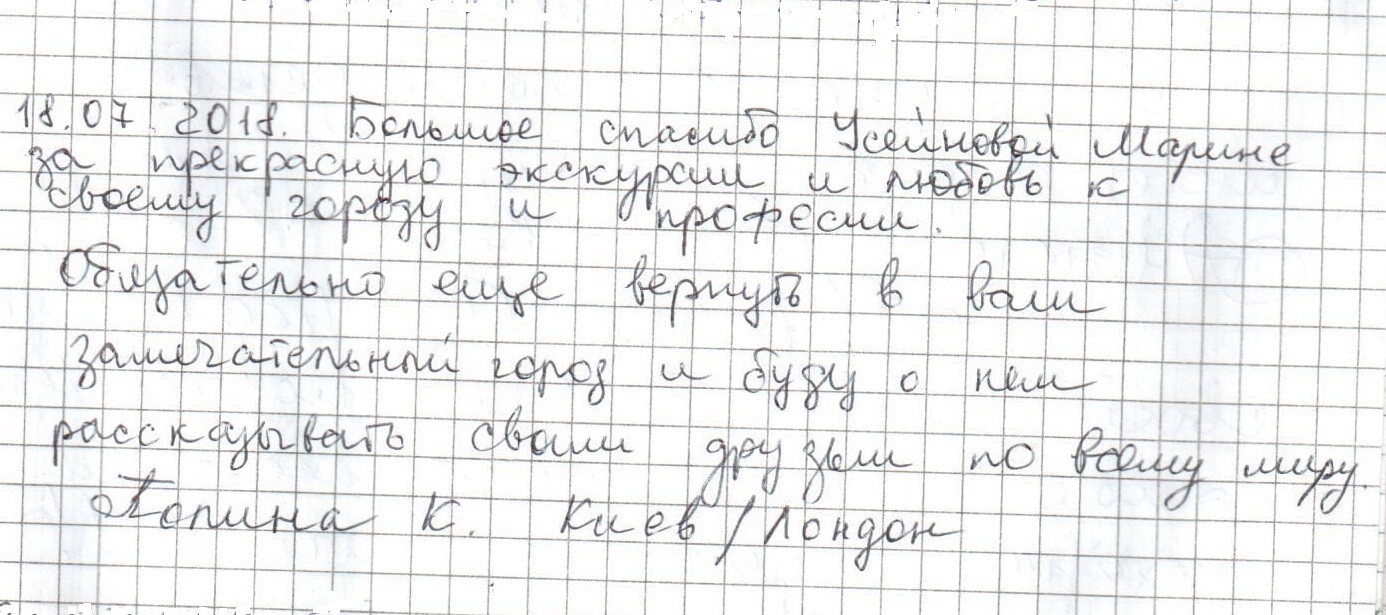 18.07.2018. Большое спасибо Усейновой Марине
за прекрасную экскурсии и любовь к
своему городу и професии.
Обязательно еще вернуть в ваш
замечательный город и буду о нем
рассказывать своим друзьям по всему миру.
К. Киев / Лондон